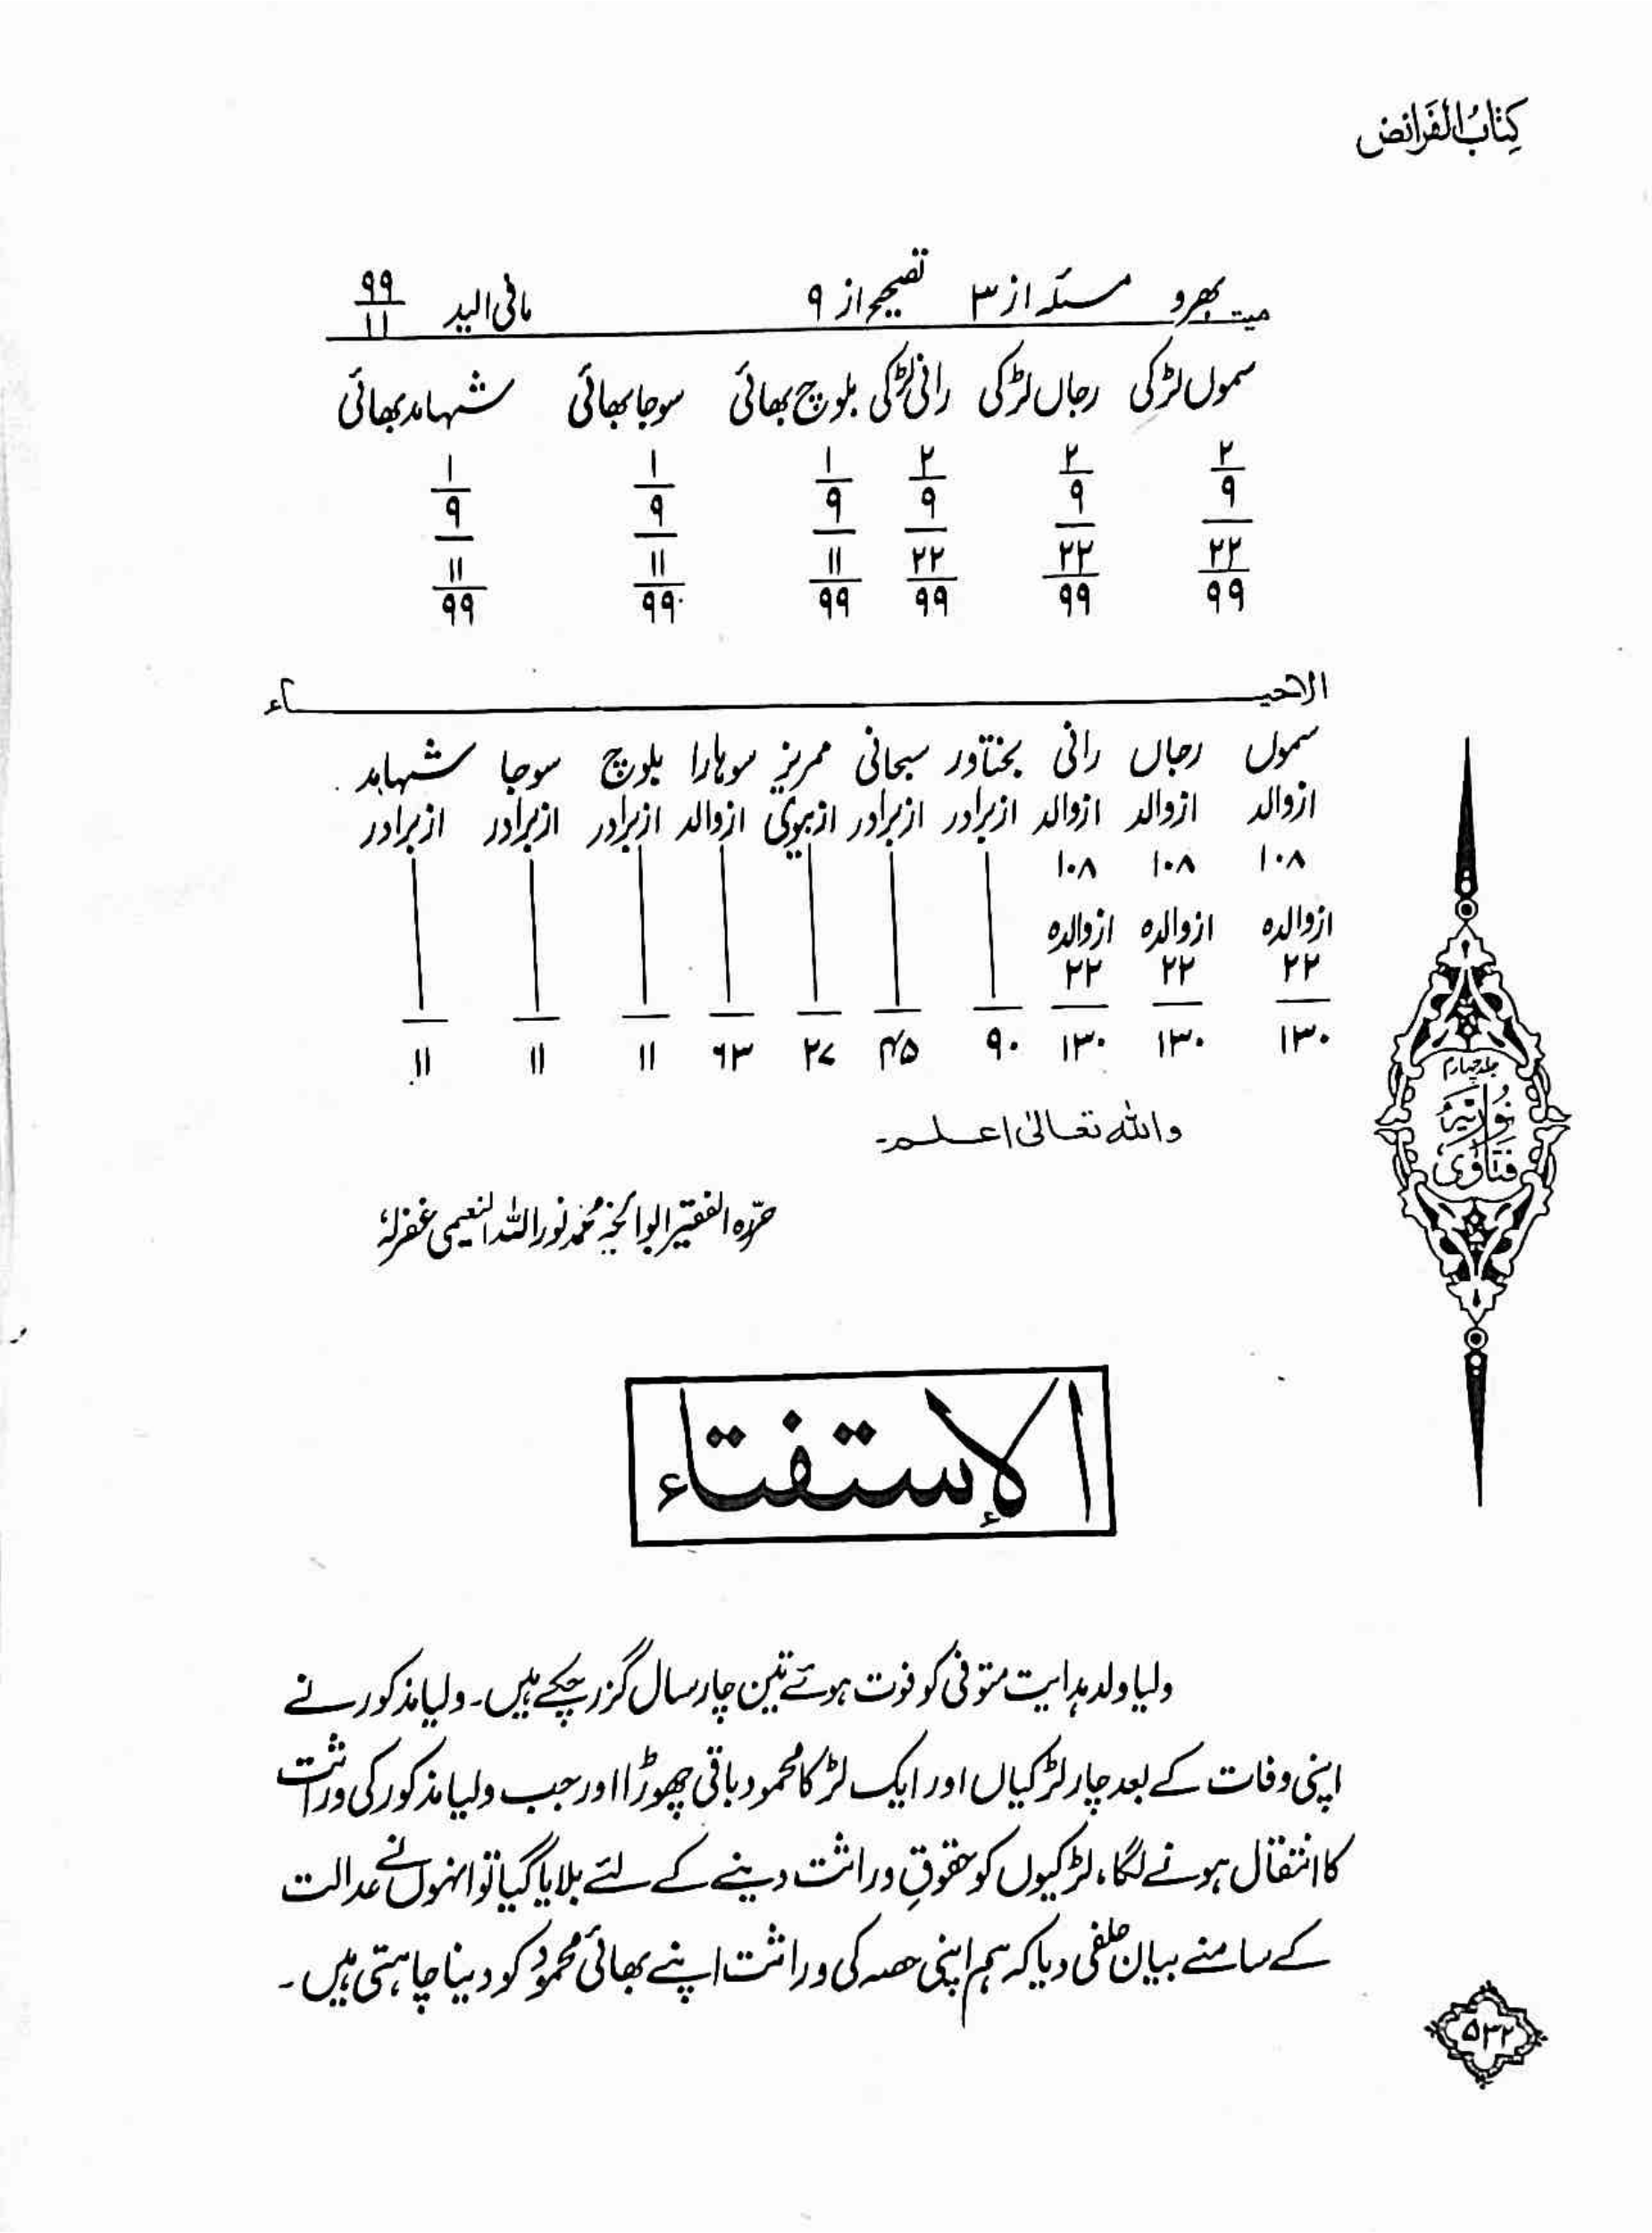 کِتَابُ الفَرائض
میت بھرو مسئلہ از ۳ تصحیح از ۹ مافی الید ۹۹/۱۱
سموں لڑکی رجاں لڑکی رانی لڑکی بلوچ بھائی سوجا بھائی شہامد بھائی
۲/۹ ۲/۹ ۲/۹ ۱/۹ ۱/۹ ۱/۹
۲۲/۹۹ ۲۲/۹۹ ۲۲/۹۹ ۱۱/۹۹ ۱۱/۹۹ ۱۱/۹۹
الاحیاء
سموں رجاں رانی بختاور سبحانی ممریز سوہارا بلوچ سوجا شہامد
ازوالد ازوالد ازوالد ازبرادر ازبرادر ازبیوی ازوالد ازبرادر ازبرادر ازبرادر
۱۰۸ ۱۰۸ ۱۰۸
ازوالدہ ازوالدہ ازوالدہ
۲۲ ۲۲ ۲۲
۱۳۰ ۱۳۰ ۱۳۰ ۹۰ ۴۵ ۲۷ ۶۳ ۱۱ ۱۱ ۱۱
واللہ تعالیٰ اعلم۔
حرّرہ الفقیر ابوالخیر محمد نور اللہ النعیمی غفرلہٗ
جلد چہارم
نُوریّہ
فتاوٰی
الاِستفتاء
ولیا ولد ہدایت متوفی کو فوت ہوئے تین چار سال گزر چکے ہیں۔ ولیا مذکور نے
اپنی وفات کے بعد چار لڑکیاں اور ایک لڑکا محمود باقی چھوڑا اور جب ولیا مذکور کی وراثت
کا انتقال ہونے لگا، لڑکیوں کو حقوقِ وراثت دینے کے لئے بلایا گیا تو انہوں نے عدالت
کے سامنے بیان حلفی دیا کہ ہم اپنی حصہ کی وراثت اپنے بھائی محمود کو دینا چاہتی ہیں۔
۵۳۲